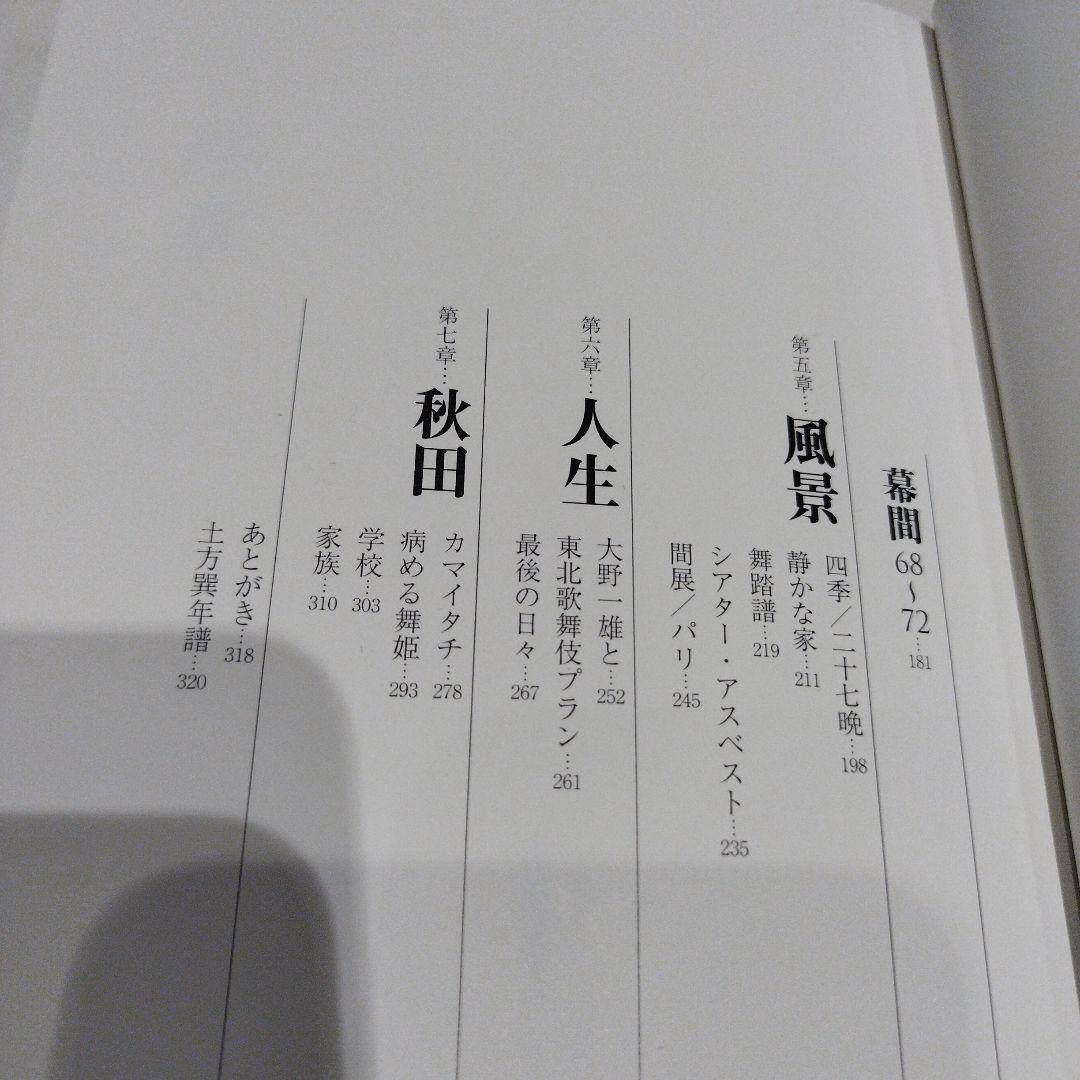 幕間 68〜72…181
第五章…風景
四季/二十七晩…198
静かな家…211
舞踏譜…219
シアター・アスベスト…235
間展/パリ…245
第六章…人生
大野一雄と…252
東北歌舞伎プラン…261
最後の日々…267
第七章…秋田
カマイタチ…278
病める舞姫…293
学校…303
家族…310
あとがき…318
土方巽年譜…320